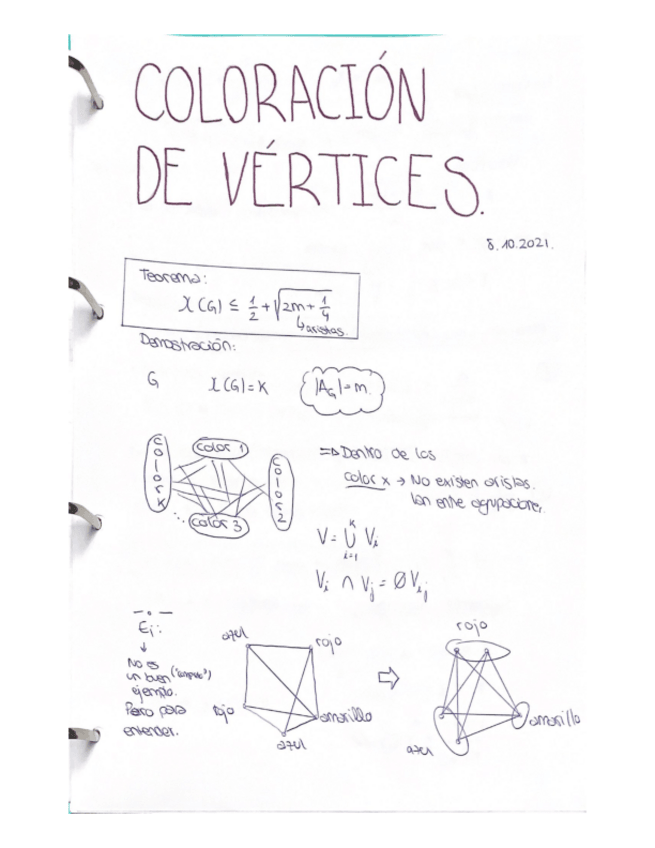 COLORACIÓN
DE VÉRTICES.
8.10.2021.
Teorema:
χ(G) ≤ 1/2 + √(2m + 1/4)
↳ aristas.
Demostración:
G χ(G) = K |A_G| = m.
color 1
color K
color 2
color 3
⇒ Dentro de los
color x → No existen aristas.
Van entre agrupaciones.
V = ⋃_{i=1}^{K} V_i
V_i ∩ V_j = ∅ ∀_{i,j}
Ej:
No es
un buen
ejemplo.
Pero para
entender.
azul
rojo
rojo
amarillo
azul
rojo
azul
amarillo